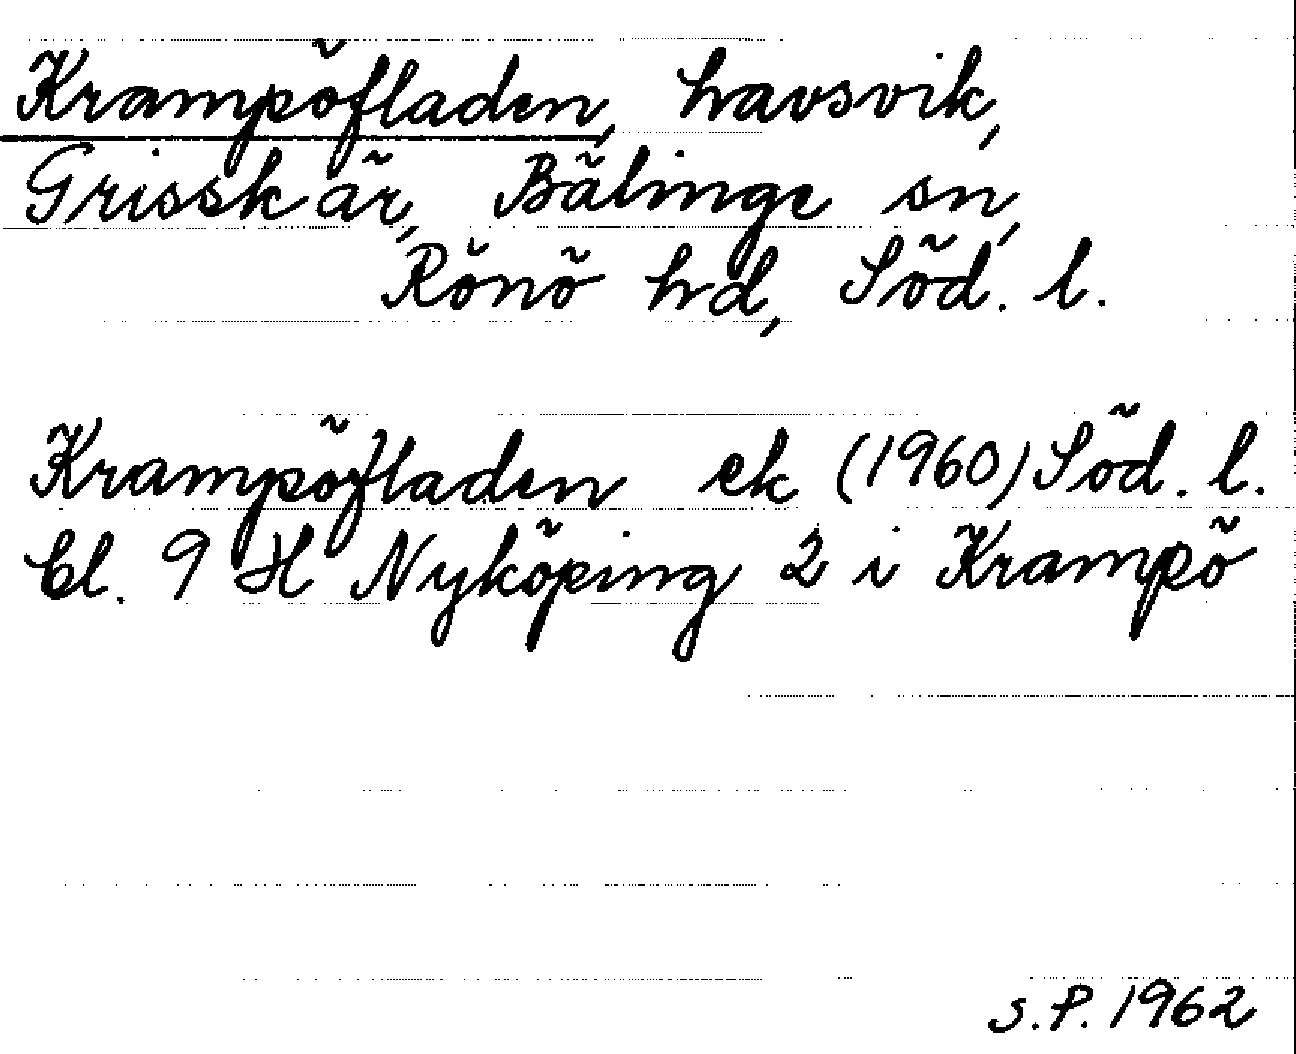 Krampöfladen, havsvik,
Grisskär, Bälinge sn,
Rönö hd, Söd. l.
Krampöfladen ek (1960) Söd. l.
bl. 9 H Nyköping 2 i Krampö
S.P. 1962